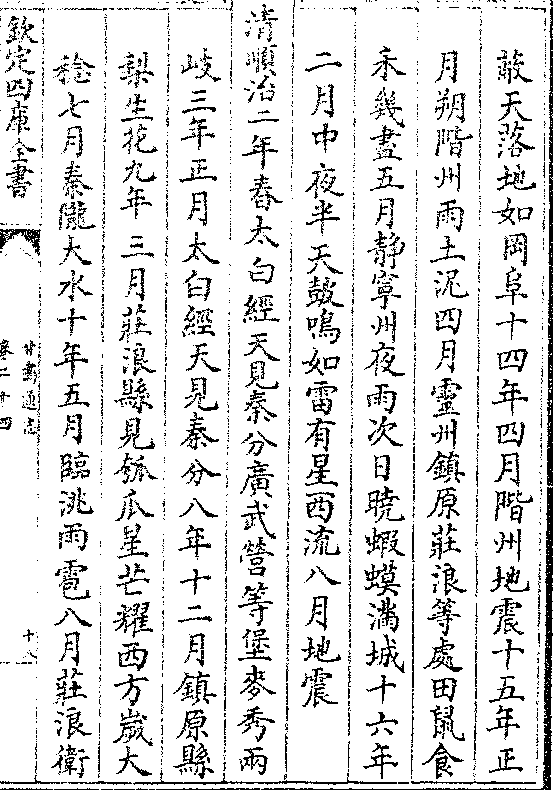 蔽天落地如岡阜十四年四月階州地震十五年正
月朔階州雨土泥四月靈州鎮原莊浪等處田鼠食
禾幾盡五月靜寧州夜雨次日曉蝦蟆滿城十六年
二月中夜半天鼓鳴如雷有星西流八月地震
清順治二年春太白經天見秦分廣武營等堡麥秀兩
岐三年正月太白經天見秦分八年十二月鎮原縣
梨生花九年三月莊浪縣見瓠瓜星芒耀西方嵗大
稔七月秦隴大水十年五月臨洮雨雹八月莊浪衛
欽定四庫全書
甘肅通志
卷二十四
十八